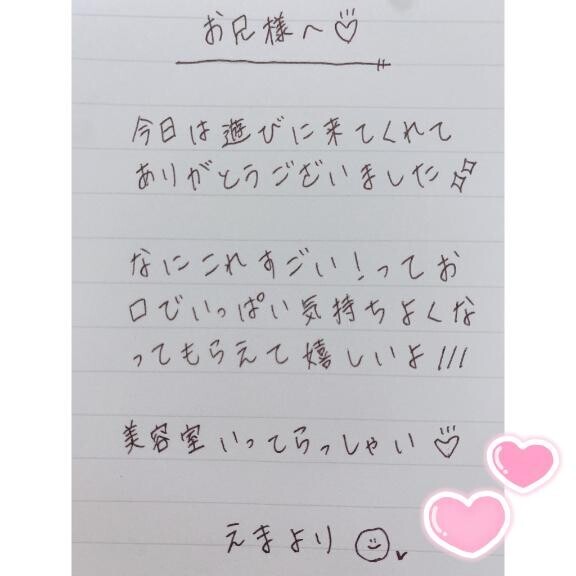 お兄様へ♡
今日は遊びに来てくれて
ありがとうございました
なにこれすごい！ってお
口でいっぱい気持ちよくな
ってもらえて嬉しいよ///
美容室いってらっしゃい♡
えまより